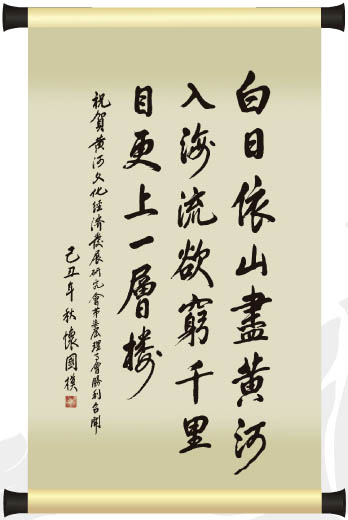 白日依山盡黃河
入海流欲窮千里
目更上一層楼
祝賀黃河文化經濟發展研究會理事會勝利召開
己丑年秋懷國模